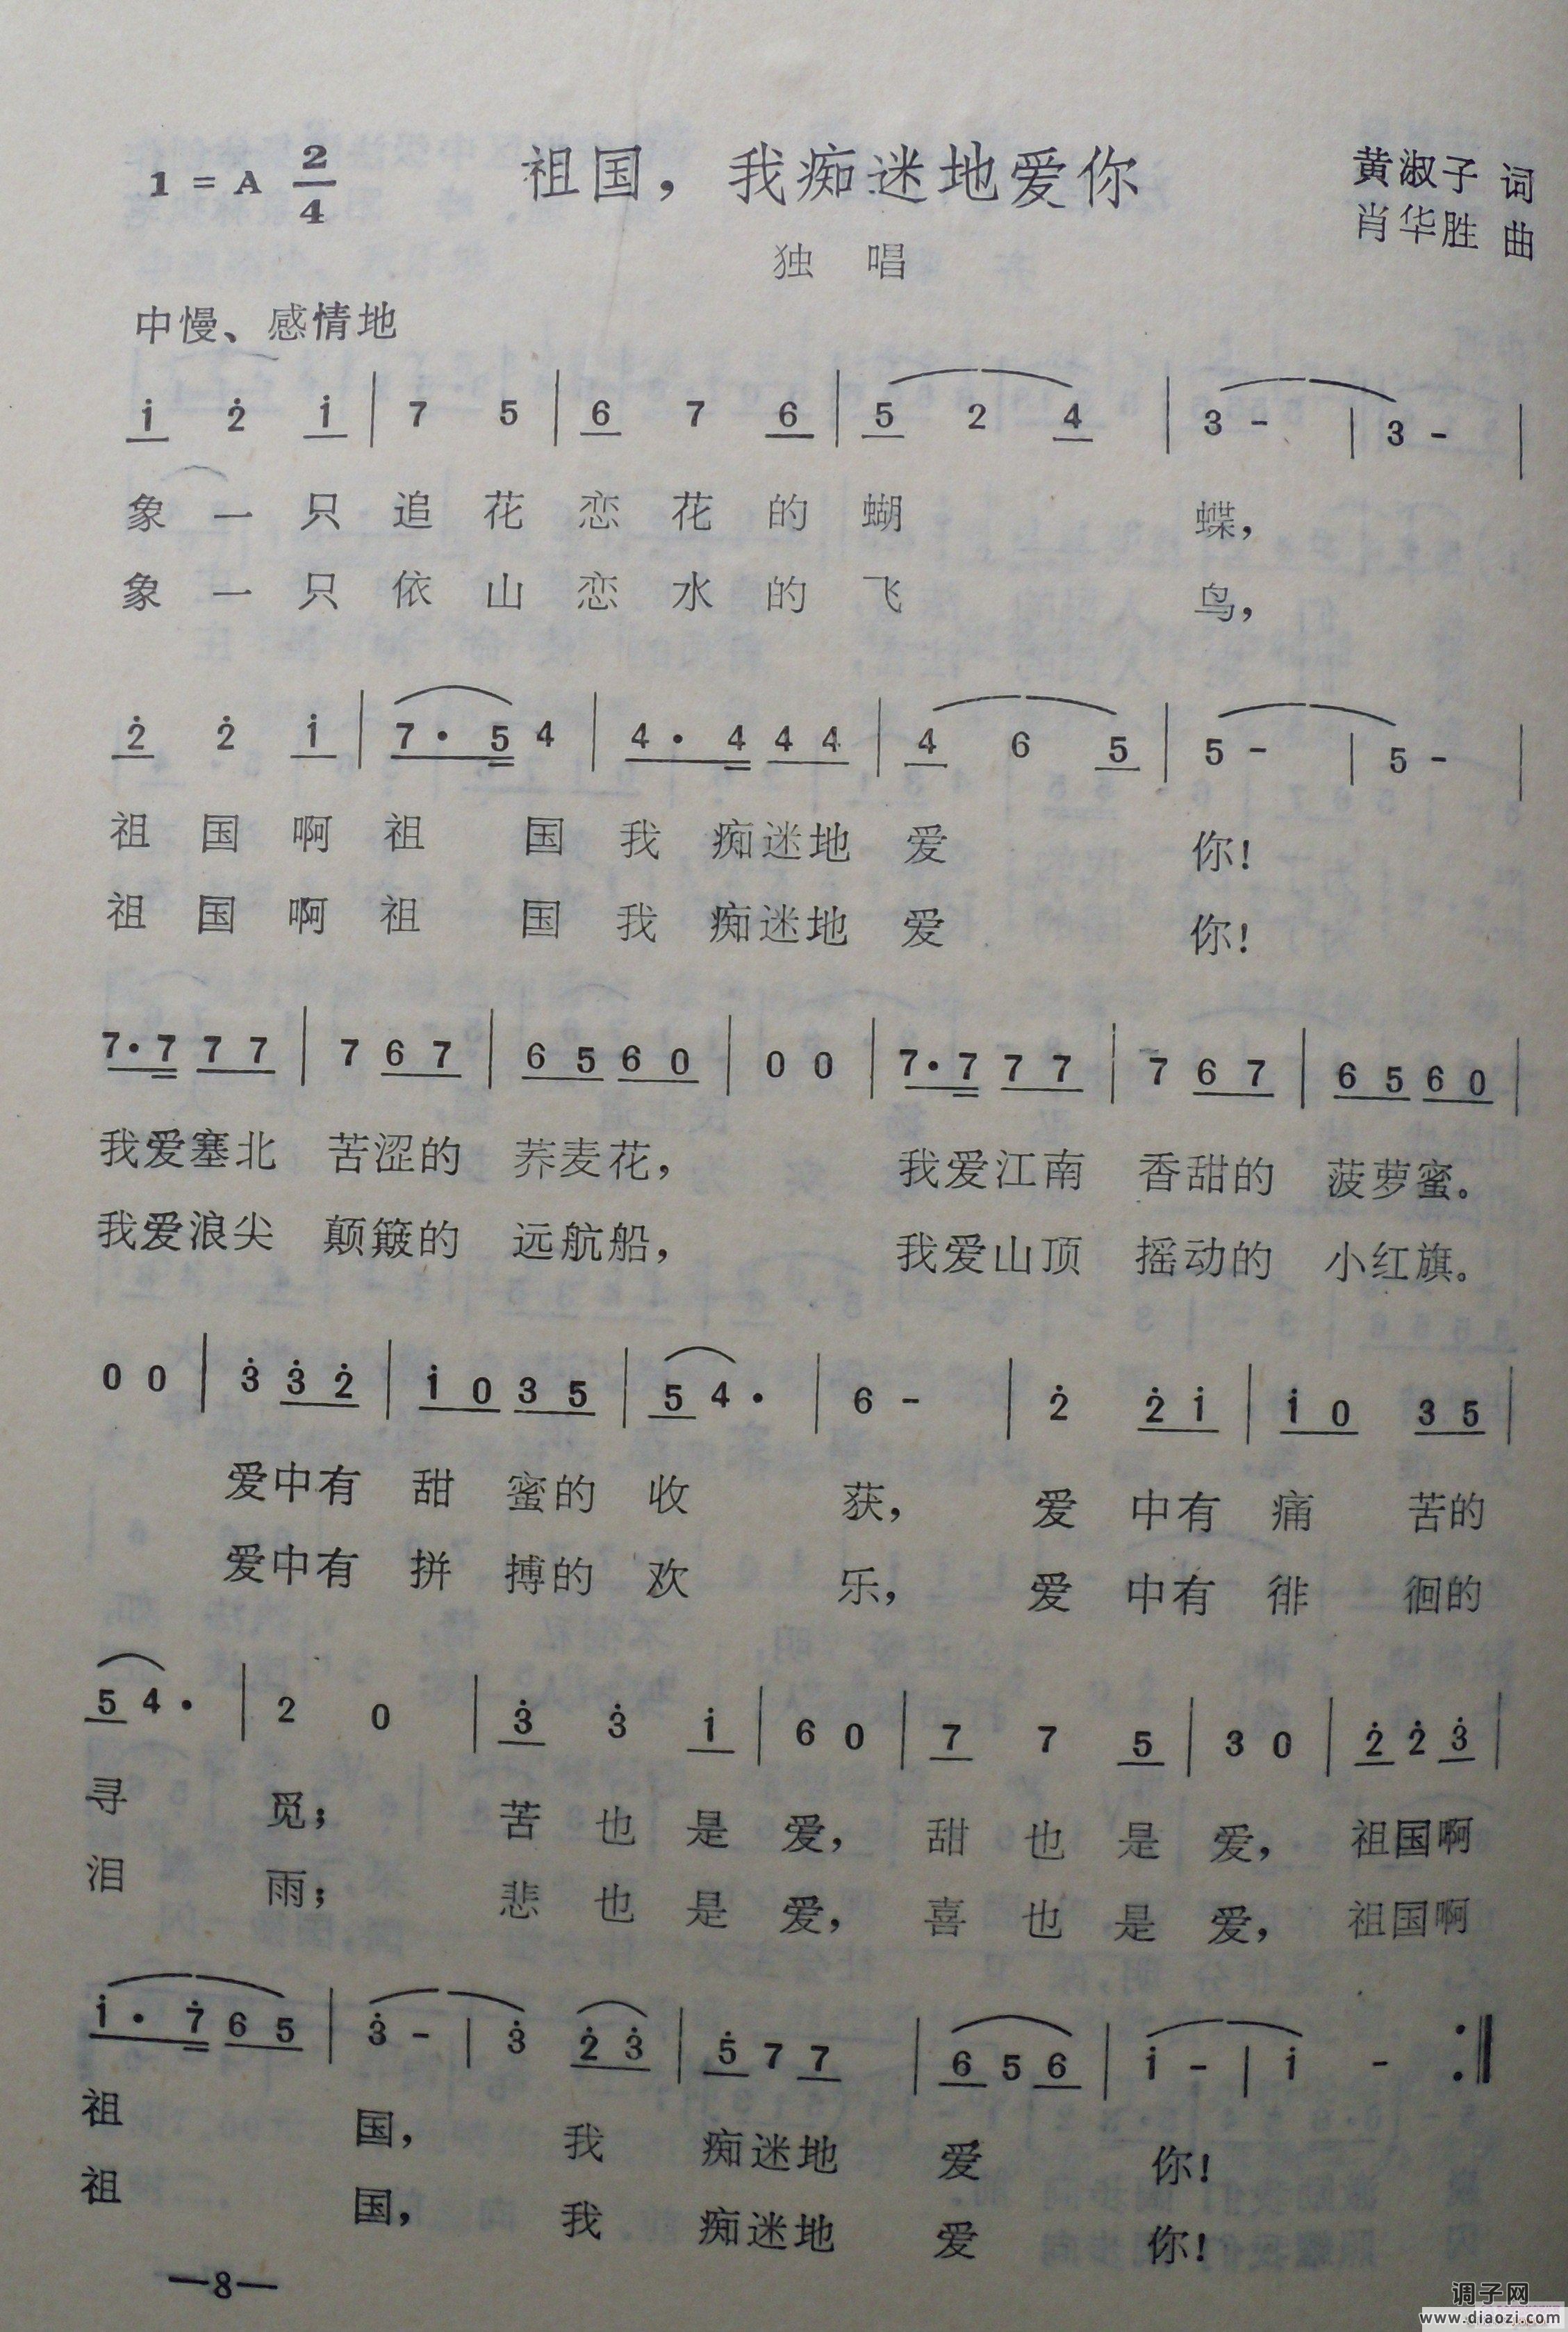 1=A 2/4 祖国，我痴迷地爱你 黄淑子 词
肖华胜 曲
独 唱
中慢、感情地
i 2̇ i | 7 5 | 6 7 6 | 5 2 4 | 3 - | 3 - |
象 一 只 追 花 恋 花 的 蝴 蝶，
象 一 只 依 山 恋 水 的 飞 鸟，
2̇ 2̇ i | 7· 5 4 | 4· 4 4 4 | 4 6 5 | 5 - | 5 - |
祖 国 啊 祖 国 我 痴迷地 爱 你！
祖 国 啊 祖 国 我 痴迷地 爱 你！
7·7 7 7 | 7 6 7 | 6 5 6 0 | 0 0 | 7·7 7 7 | 7 6 7 | 6 5 6 0 |
我爱塞北 苦涩的 荞麦花， 我爱江南 香甜的 菠萝蜜。
我爱浪尖 颠簸的 远航船， 我爱山顶 摇动的 小红旗。
0 0 | 3̇ 3̇ 2̇ | i 0 3 5 | 5 4· | 6 - | 2̇ 2̇ i | i 0 3 5 |
爱中有 甜 蜜的 收 获， 爱 中有 痛 苦的
爱中有 拼 搏的 欢 乐， 爱 中有 徘 徊的
5 4· | 2 0 | 3̇ 3̇ i | 6 0 | 7 7 5 | 3 0 | 2̇ 2̇ 3̇ |
寻 觅； 苦 也 是 爱， 甜 也 是 爱， 祖国啊
泪 雨； 悲 也 是 爱， 喜 也 是 爱， 祖国啊
i· 7̇ 6 5 | 3̇ - | 3̇ 2̇ 3̇ | 5̇ 7 7 | 6 5 6 | i - | i - :||
祖 国， 我 痴迷地 爱 你！
祖 国， 我 痴迷地 爱 你！
—8—
调子网
www.diaozi.com